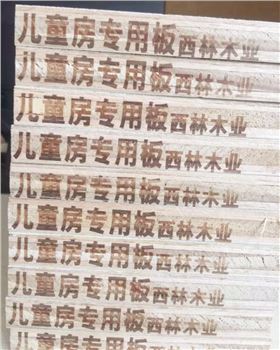 儿童房专用板西林木业
儿童房专用板西林木业
儿童房专用板西林木业
儿童房专用板西林木业
儿童房专用板西林木业
儿童房专用板西林木业
儿童房专用板西林木业
儿童房专用板西林木业
儿童房专用板西林木业
儿童房专用板西林木业